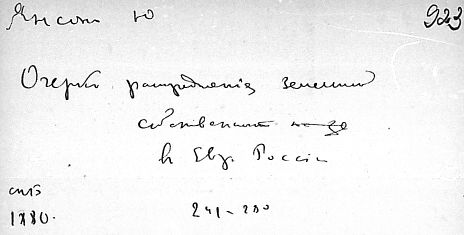 Янсон Ю
923
Очеркъ распределенія земельной
собственности
в Евр. Россіи
СПБ
1880.
241-280